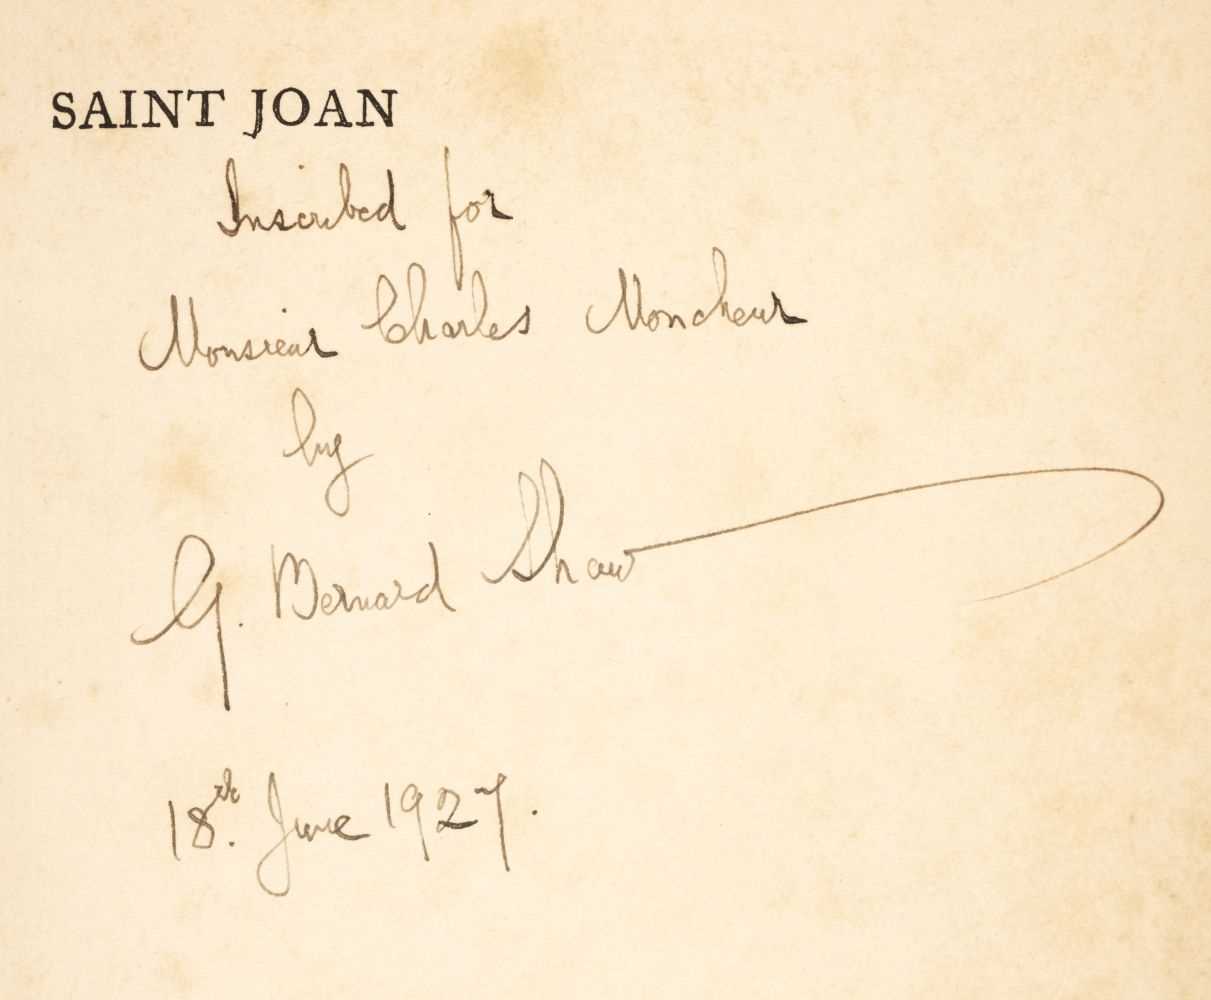 SAINT JOAN
Inscribed for
Monsieur Charles Moncheur
by
G. Bernard Shaw
18th. June 1927.